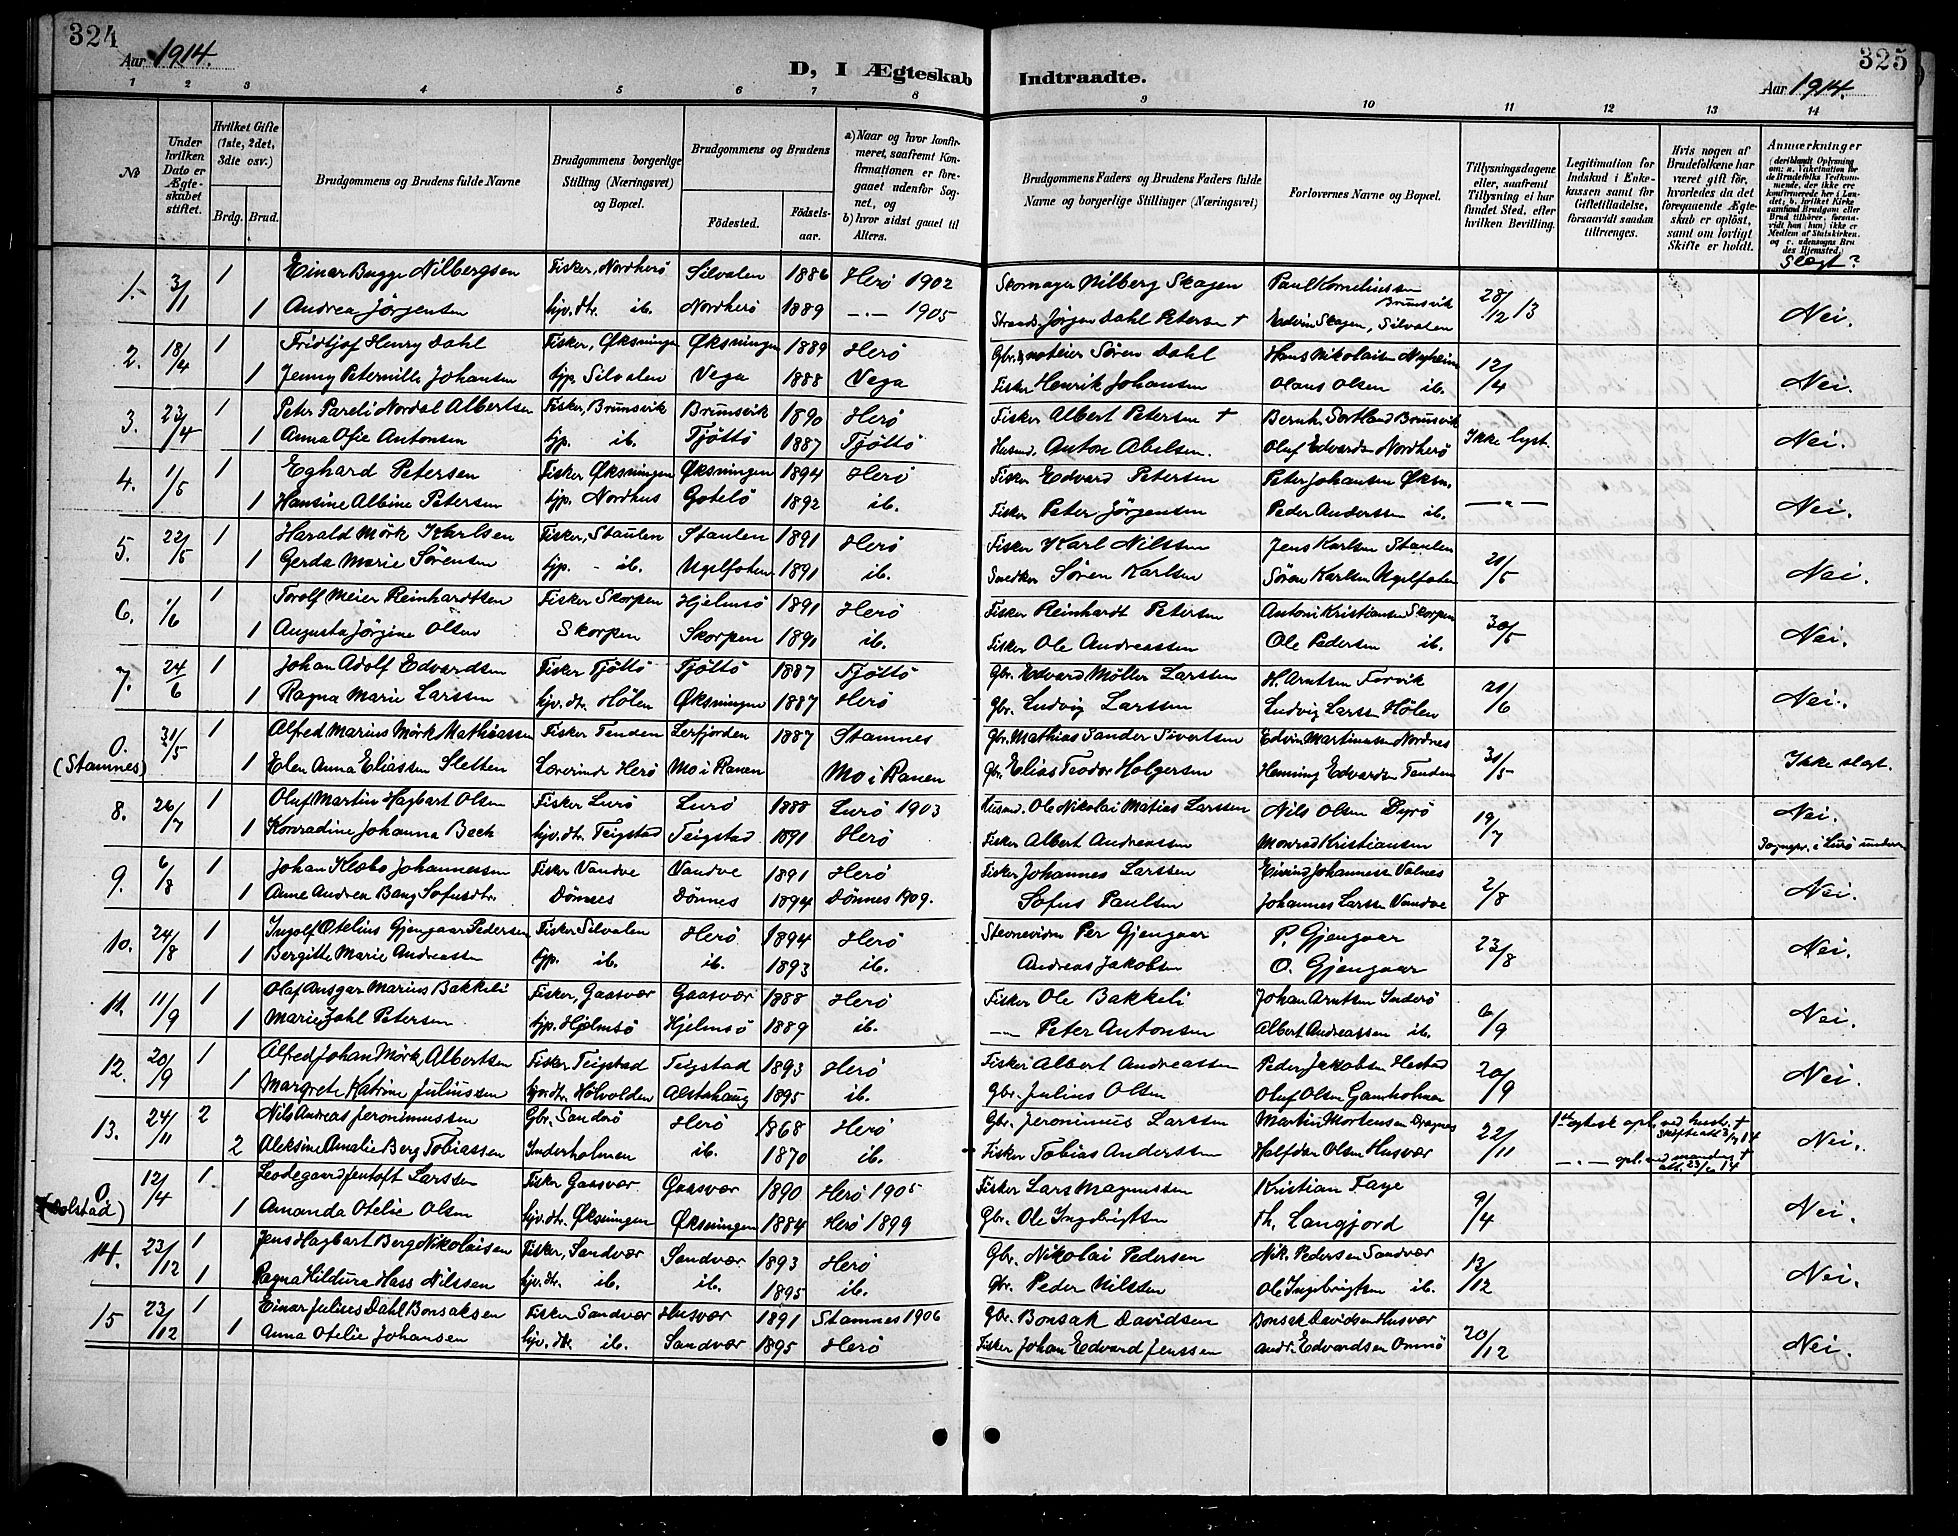 324
Aar 1914.
D, I Ægteskab Indtraadte.
Aar 1914.
325
1 2 3 4 5 6 7 8 9 10 11 12 13 14
No
Under hvilken Dato er Ægteskabet stiftet.
Hvilket Gifte (1ste, 2det, 3die osv.)
Brdg. Brud.
Brudgommens og Brudens fulde Navne
Brudgommens borgerlige Stilling (Næringsvei) og Bopæl.
Brudgommens og Brudens
Fødested. Fødselsaar.
a) Naar og hvor konfirmeret, saafremt Konfirmationen er foregaaet udenfor Sognet, og
b) hvor sidst gaaet til Alters.
Brudgommens Faders og Brudens Faders fulde Navne og borgerlige Stillinger (Næringsvei)
Forlovernes Navne og Bopæl.
Tillysningsdagene eller, saafremt Tillysning ei har fundet Sted, efter hvilken Bevilling.
Legitimation for Indskud i Enkekassen samt for Giftetilladelse, forsaavidt saadan tiltrænges.
Hvis nogen af Brudefolkene har været gift før, hvorledes da det foregaaende Ægteskab er opløst, samt om lovligt Skifte er holdt.
Anmærkninger
Slægt?
1. 3/1 1 Einar Bugge Nilbergsen Fisker, Nordherö Silvalen 1886 Herö 1902 Skomager Nilberg Skagen Paul Korneliussen Brunsvik 28/12 13 Nei.
1 Andrea Jørgensen hjv. dtr. ib. Nordherö 1889 -.- 1905 Strands. Jørgen Dahl Petersen † Edvin Skagen, Silvalen
2. 18/4 1 Fridtjof Henry Dahl Fisker, Øksningen Øksningen 1889 Herö Gbr. & noteier Sören Dahl Hans Nikolaisen Nyheim 12/4 Nei.
1 Jenny Petermille Johansen tjp. Silvalen Vega 1888 Vega Fisker Henrik Johansen Olaus Olsen ib.
3. 23/4 1 Peter Pareli Nordal Albertsen Fisker, Brunsvik Brunsvik 1890 Herö Fisker Albert Petersen † Bernh. Sortland Brunsvik Ikke lyst. Nei.
1 Anna Ofie Antonsen tjp. ib. Tjöttö 1887 Tjöttö Husmd. Anton Abelsen. Oluf Edvardsen Nordherö
4. 1/5 1 Eghard Petersen Fisker Øksningen Øksningen 1894 Herö Fisker Edvard Petersen Peter Johansen Øksn. —"— Nei.
1 Hansine Albine Petersen tjp. Nordhus Gotelö 1892 ib. Fisker Peter Jørgensen Peder Anderssen ib.
5. 22/5 1 Harald Mörk Karlsen Fisker, Staulen Staulen 1891 Herö Fisker Karl Nilssen Jens Karlsen Staulen 21/5 Nei.
1 Gerda Marie Sörensen tjp. - ib. Ugelfoten 1891 ib. Snedker Sören Karlsen Sören Karlsen Ugelfoten
6. 1/6 1 Torolf Meier Reinhardtsen Fisker Skorpen Hjelmsö 1891 Herö Fisker Reinhardt Petersen Anton Kristiansen Skorpen 30/5 Nei.
1 Augusta Jörgine Olsen Skorpen Skorpen 1891 ib. Fisker Ole Andreassen Ole Pedersen ib.
7. 24/6 1 Johan Adolf Edvardsen Fisker Tjöttö Tjöttö 1887 Tjöttö Gbr. Edvard Møller Larssen H. Arntsen Forvik 20/6 Nei.
1 Ragna Marie Larssen hjv. dtr. Hölen Øksningen 1887 Herö Gbr. Ludvig Larssen Ludvig Larssen Hölen
0. (Stamnes) 31/5 1 Alfred Marius Mörk Mathiassen Fisker Tenden Lerfjorden 1887 Stamnes Gbr. Mathias Sander Sivertsen Edvin Martinusen Nordnes 30/5 Ikke slægt.
1 Elen Anna Eliassen Sletten Lærerinde Herö Mo i Ranen Mo i Ranen Gbr. Elias Teodor Holgersen Henning Edvardsen Tenden
8. 26/7 1 Oluf Martin Hagbart Olsen Fisker Lurö Lurö 1888 Lurö 1903 Husmd. Ole Nikolai Matias Larssen Nils Olsen Dyrö 19/7 Nei.
1 Konradine Johanna Bech hjv. dtr. Teigstad Teigstad 1891 Herö Fisker Albert Andreassen Monrad Kristiansen
9. 6/8 1 Johan Klæbo Johannessen Fisker Vandve Vandve 1891 Herö Fisker Johannes Larssen Eivind Johannessen Valnes 2/8 Nei.
1 Anne Andrea Bang Sofusdtr. Dönnes Dönnes 1894 Dönnes 1909. Sofus Paulsen Johannes Larssen Vandve
10. 24/8 1 Ingolf Otelius Gjengaar Pedersen Fisker Silvalen Herö 1894 Herö Stevnevidne Per Gjengaar P. Gjengaar 23/8 Nei.
1 Bergitte Marie Andreassen tjp. ib. ib. 1893 ib. Andreas Jakobsen O. Gjengaar
11. 11/9 1 Olaf Ansgar Marius Bakkeli Fisker, Gaasvær Gaasvær 1888 Herö Fisker Ole Bakkeli Johan Arntsen Inderö 6/9 Nei.
1 Marie Dahl Petersen tjp. Hjelmsö Hjelmsö 1889 ib. —"— Peter Antonsen Albert Andreassen ib.
12. 20/9 1 Alfred Johan Mörk Albertsen Fisker Teigstad Teigstad 1893 Herö Fisker Albert Andreassen Peder Jakobsen Hestad 20/9 Nei.
1 Margrete Katrine Juliussen hjv. dtr. Holvolden Alstahaug 1895 ib. Gbr. Julius Olsen Oluf Olsen Gamholmen
13. 24/11 2 Nils Andreas Jeronimussen Gbr. Sanderö Herö 1868 Herö Gbr. Jeronimus Larssen Martin Mortensen Dragnes 22/11 Nei.
2 Aleksine Amalie Berg Tobiassen Inderholmen ib. 1870 ib. Fisker Tobias Anderssen Halfdan Olsen Husvær
0. (Dolstad) 12/4 1 Leodegard Jentoft Larssen Fisker Gaasvær Gaasvær 1890 Herö 1905 Fisker Lars Magnussen Kristian Faye 9/4 Nei.
1 Amanda Otelie Olsen hjv. dtr. Øksningen Øksningen 1884 Herö 1899 Gbr. Ole Ingebrigtsen Th. Langjord
14. 23/12 1 Jens Hagbart Berg Nikolaisen Fisker, Sandvær Sandvær 1893 Herö Gbr. Nikolai Pedersen Nik. Pedersen Sandvær 13/12 Nei.
1 Ragna Hildura Hass Nilssen hjv. dtr. ib. ib. 1895 ib. Gbr. Peder Nilssen Ole Ingebrigtsen ib.
15 23/12 1 Einar Julius Dahl Bonsaksen Fisker Sandvær Husvær 1891 Stamnes 1906 Gbr. Bonsak Davidsen Bonsak Davidsen Husvær 20/12 Nei.
1 Anna Otelie Johansen hjv. dtr. ib. Sandvær 1895 Herö Fisker Johan Edvard Jenssen Andr. Edvardsen Ommö